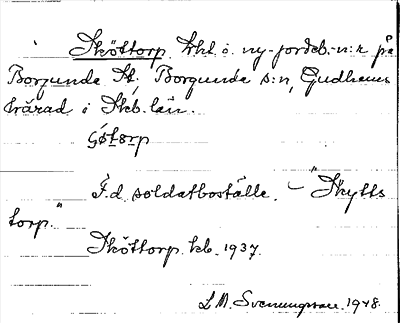 Sköttorp. Lht o. ny-jordeb.-n:r på
Borgunda St, Borgunda s:n, Gudhems
härad i Skb. län.
F.d. soldatboställe. - "Skytts
torp."
Sköttorp. kb. 1937.
L M. Svenungsson. 1948.